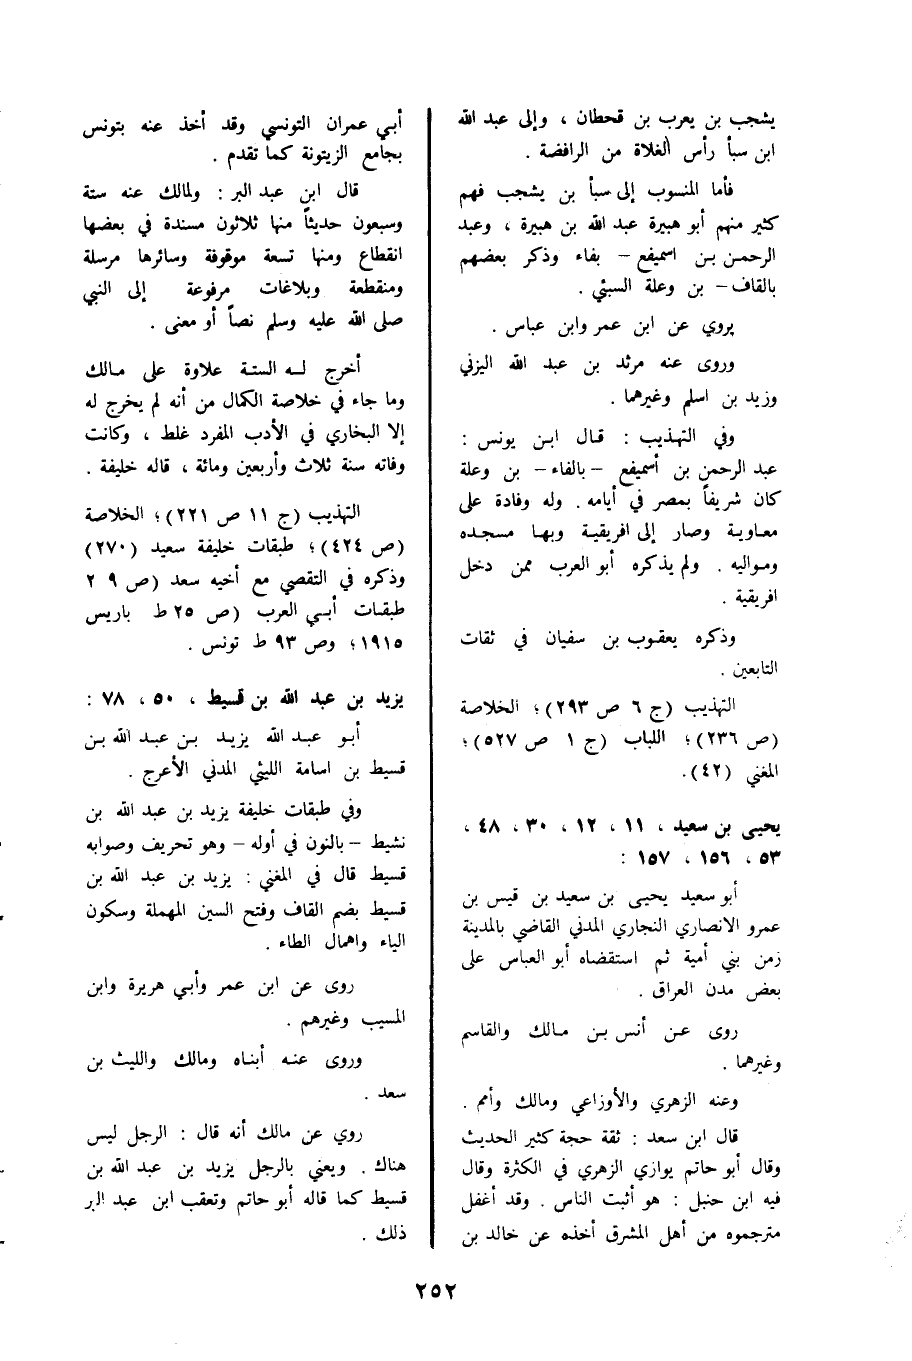 يشجب بن يعرب بن قحطان ، وإلى عبد الله
ابن سبأ رأس الغلاة من الرافضة .
فأما المنسوب إلى سبأ بن يشجب فهم
كثير منهم أبو هبيرة عبد الله بن هبيرة ، وعبد
الرحمن بن اسميفع – بفاء وذكر بعضهم
بالقاف – بن وعلة السبئي .
يروي عن ابن عمر وابن عباس .
وروى عنه مرثد بن عبد الله اليزني
وزيد بن اسلم وغيرهما .
وفي التهذيب : قال ابن يونس :
عبد الرحمن بن أسميفع – بالفاء – بن وعلة
كان شريفاً بمصر في أيامه . وله وفادة على
معاوية وصار إلى افريقية وبها مسجده
ومواليه . ولم يذكره أبو العرب ممن دخل
افريقية .
وذكره يعقوب بن سفيان في ثقات
التابعين .
التهذيب (ج ٦ ص ٢٩٣)؛ الخلاصة
(ص ٢٣٦)؛ اللباب (ج ١ ص ٥٢٧)؛
المغني (٤٢).
يحيى بن سعيد ، ١١ ، ١٢ ، ٣٠ ، ٤٨ ،
٥٣ ، ١٥٦ ، ١٥٧ :
أبو سعيد يحيى بن سعيد بن قيس بن
عمرو الانصاري النجاري المدني القاضي بالمدينة
زمن بني أمية ثم استقضاه أبو العباس على
بعض مدن العراق .
روى عن أنس بن مالك والقاسم
وغيرهما .
وعنه الزهري والأوزاعي ومالك وأمم .
قال ابن سعد : ثقة حجة كثير الحديث
وقال أبو حاتم يوازي الزهري في الكثرة وقال
فيه ابن حنبل : هو أثبت الناس . وقد أغفل
مترجموه من أهل المشرق أخذه عن خالد بن
أبي عمران التونسي وقد أخذ عنه بتونس
بجامع الزيتونة كما تقدم .
قال ابن عبد البر : ولمالك عنه ستة
وسبعون حديثاً منها ثلاثون مسندة في بعضها
انقطاع ومنها تسعة موقوفة وسائرها مرسلة
ومنقطعة وبلاغات مرفوعة إلى النبي
صلى الله عليه وسلم نصاً أو معنى .
أخرج له الستة علاوة على مالك
وما جاء في خلاصة الكمال من أنه لم يخرج له
إلا البخاري في الأدب المفرد غلط ، وكانت
وفاته سنة ثلاث وأربعين ومائة ، قاله خليفة .
التهذيب (ج ١١ ص ٢٢١)؛ الخلاصة
(ص ٤٢٤)؛ طبقات خليفة سعيد (٢٧٠)
وذكره في التقصي مع أخيه سعد (ص ٩ ٢
طبقات أبي العرب (ص ٢٥ ط باريس
١٩١٥؛ وص ٩٣ ط تونس .
يزيد بن عبد الله بن قسيط ، ٥٠ ، ٧٨ :
أبو عبد الله يزيد بن عبد الله بن
قسيط بن اسامة الليثي المدني الأعرج .
وفي طبقات خليفة يزيد بن عبد الله بن
نشيط – بالنون في أوله – وهو تحريف وصوابه
قسيط قال في المغني : يزيد بن عبد الله بن
قسيط بضم القاف وفتح السين المهملة وسكون
الياء واهمال الطاء .
روى عن ابن عمر وأبي هريرة وابن
المسيب وغيرهم .
وروى عنه أبناه ومالك والليث بن
سعد .
روي عن مالك أنه قال : الرجل ليس
هناك . ويعني بالرجل يزيد بن عبد الله بن
قسيط كما قاله أبو حاتم وتعقب ابن عبد البر
ذلك .
٢٥٢